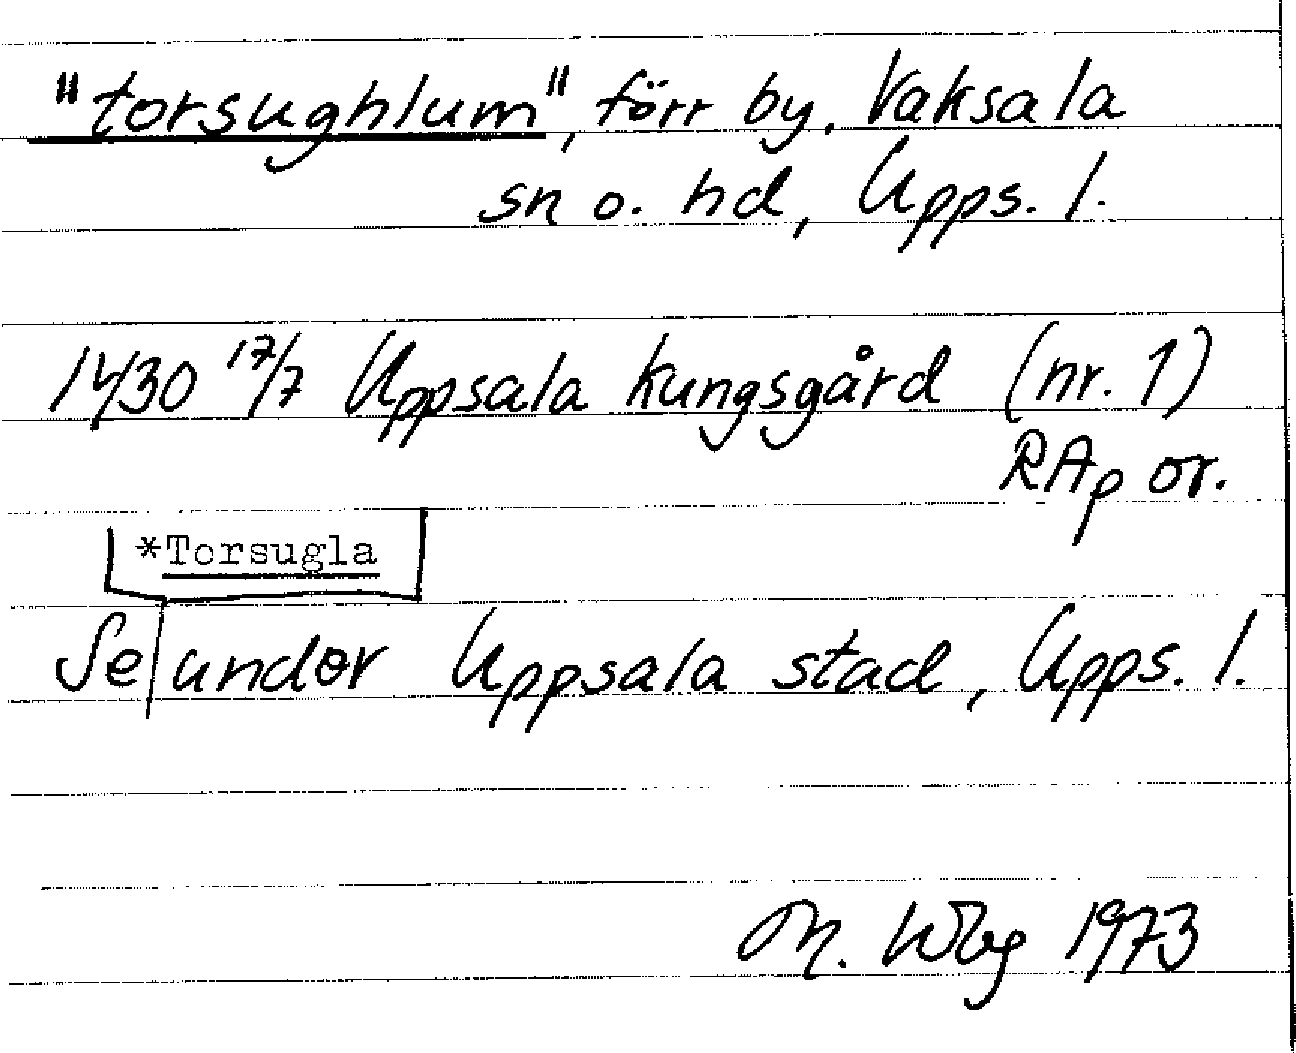 "torsughlum", förr by, Vaksala
sn o. hd, Upps. l.
1430 17/7 Uppsala kungsgård (nr. 1)
RAp or.
*Torsugla
Se under Uppsala stad, Upps. l.
M. Wbg 1973